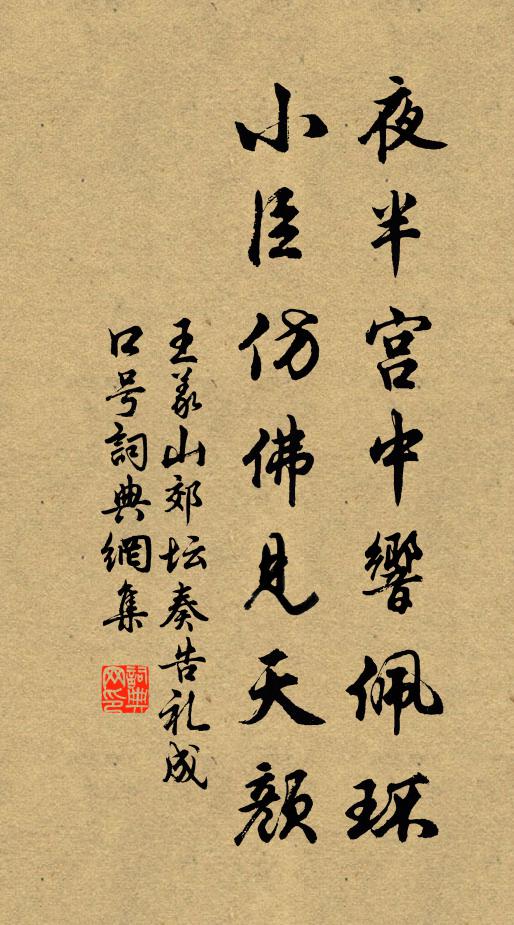 夜半宫中響佩环
小臣仿佛見天颜
王义山郊坛奏告礼成
口号詞典網集
詞典网印